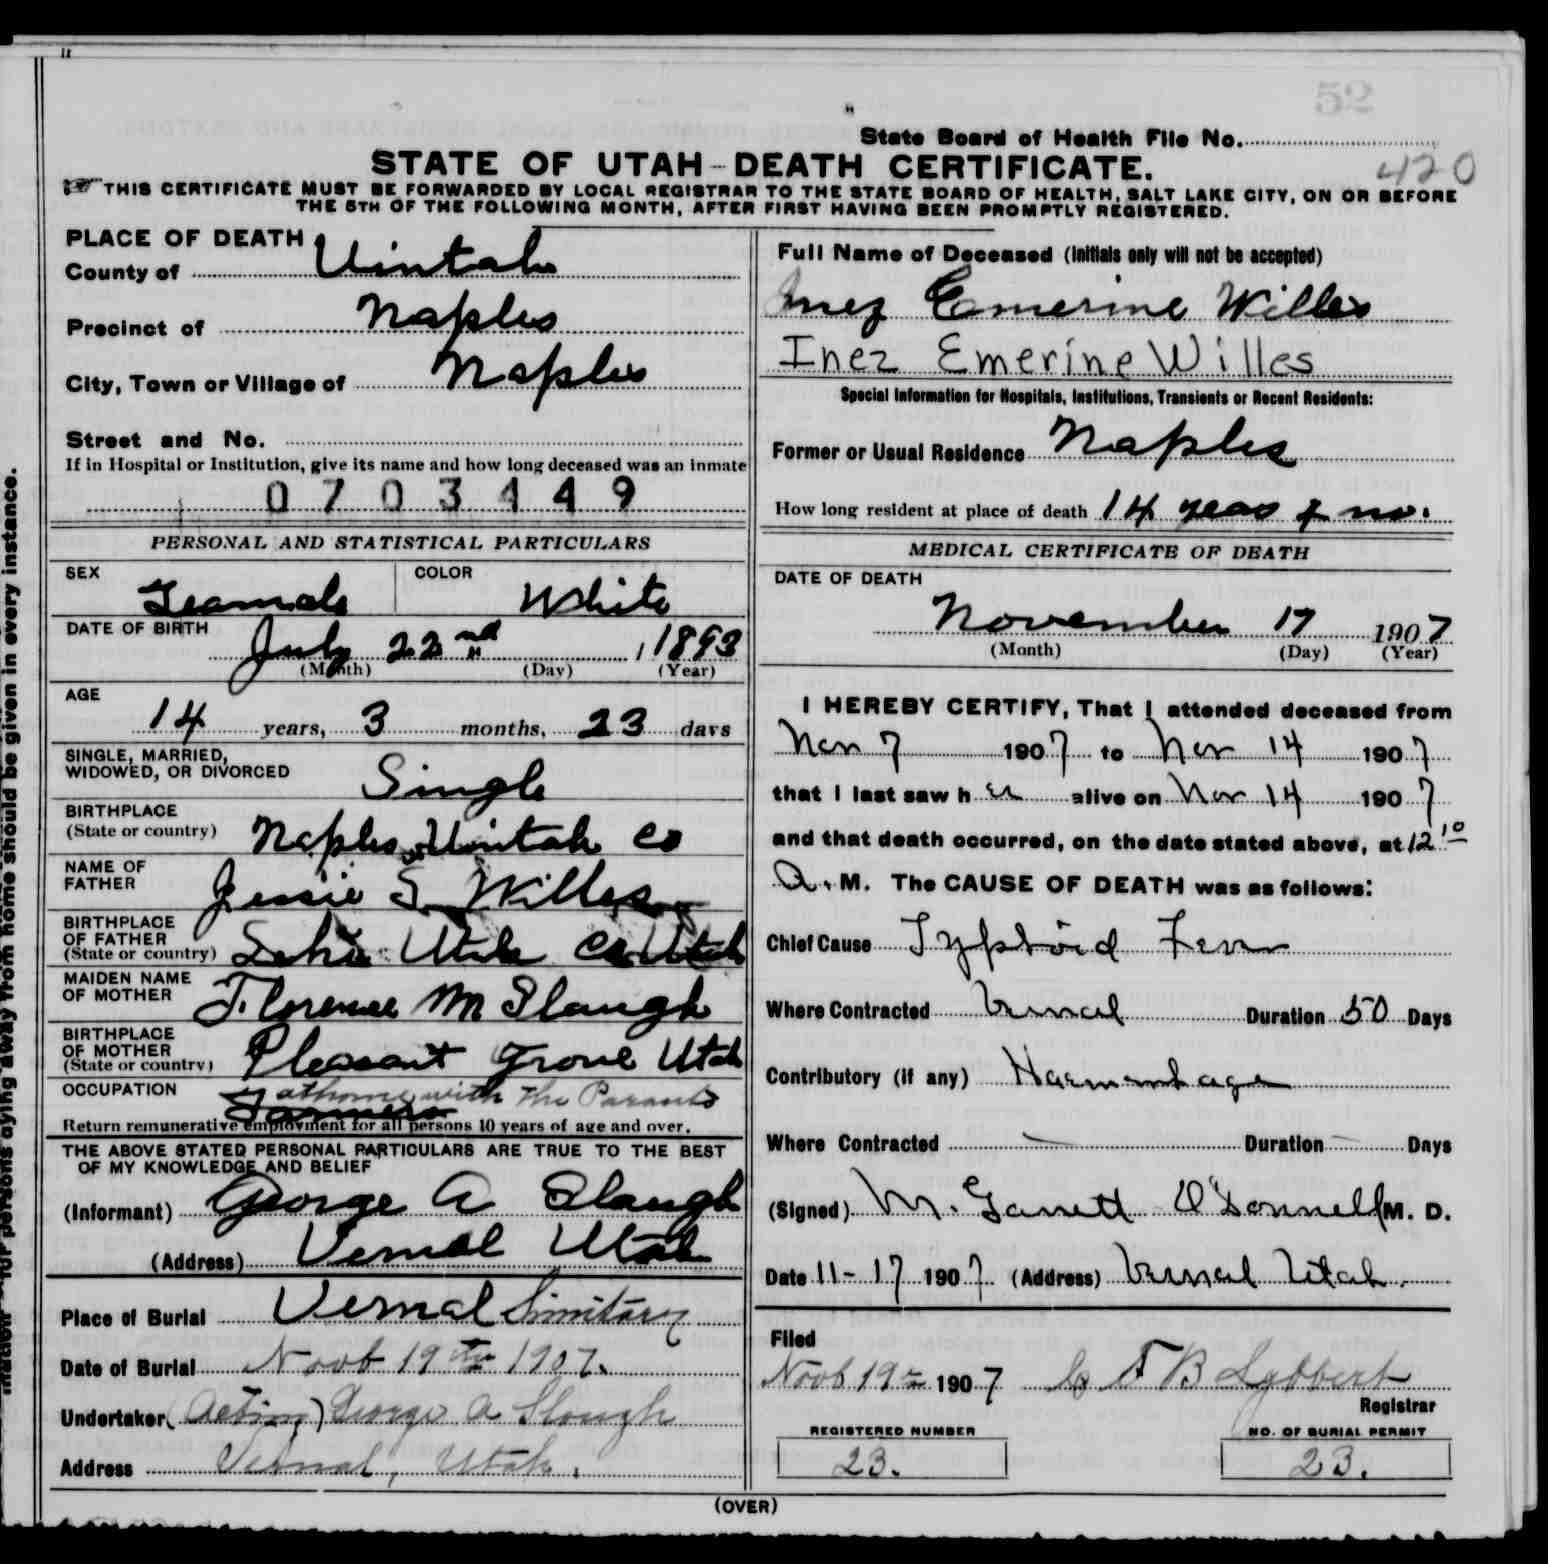 52
State Board of Health File No.
420
STATE OF UTAH-DEATH CERTIFICATE.
THIS CERTIFICATE MUST BE FORWARDED BY LOCAL REGISTRAR TO THE STATE BOARD OF HEALTH, SALT LAKE CITY, ON OR BEFORE
THE 5TH OF THE FOLLOWING MONTH, AFTER FIRST HAVING BEEN PROMPTLY REGISTERED.
PLACE OF DEATH
County of Uintah
Precinct of Naples
City, Town or Village of Naples
Street and No.
If in Hospital or Institution, give its name and how long deceased was an inmate
0703449
PERSONAL AND STATISTICAL PARTICULARS
SEX Feamale COLOR White
DATE OF BIRTH July 22nd, 1893
(Month) (Day) (Year)
AGE
14 years, 3 months, 23 days
SINGLE, MARRIED,
WIDOWED, OR DIVORCED Single
BIRTHPLACE
(State or country) Naples Uintah Co
NAME OF
FATHER Jessie S. Willes
BIRTHPLACE
OF FATHER
(State or country) Lehi Utah Co Utah
MAIDEN NAME
OF MOTHER Florence M Slaugh
BIRTHPLACE
OF MOTHER
(State or country) Pleasant Grove Utah
OCCUPATION at home with the Parants
Farmers
Return remunerative employment for all persons 10 years of age and over.
THE ABOVE STATED PERSONAL PARTICULARS ARE TRUE TO THE BEST
OF MY KNOWLEDGE AND BELIEF
(Informant) George A Slaugh
(Address) Vernal Utah
Place of Burial Vernal Simitary
Date of Burial Novb 19th 1907.
Undertaker (Acting) George A Slough
Address Vernal, Utah.
Full Name of Deceased (Initials only will not be accepted)
Inez Emerine Willes
Inez Emerine Willes
Special Information for Hospitals, Institutions, Transients or Recent Residents:
Former or Usual Residence Naples
How long resident at place of death 14 years & mo.
MEDICAL CERTIFICATE OF DEATH
DATE OF DEATH
November 17 1907
(Month) (Day) (Year)
I HEREBY CERTIFY, That I attended deceased from
Nov 7 1907 to Nov 14 1907
that I last saw her alive on Nov 14 1907
and that death occurred, on the date stated above, at 12 10
A. M. The CAUSE OF DEATH was as follows:
Chief Cause Typhoid Fever
Where Contracted Vernal Duration 50 Days
Contributory (if any) Haemorrhage
Where Contracted Duration Days
(Signed) M. Garrett O'Donnell M. D.
Date 11-17 1907 (Address) Vernal Utah.
Filed
Novb 19th 1907 B Lybbert
Registrar
REGISTERED NUMBER NO. OF BURIAL PERMIT
23. 23.
(OVER)